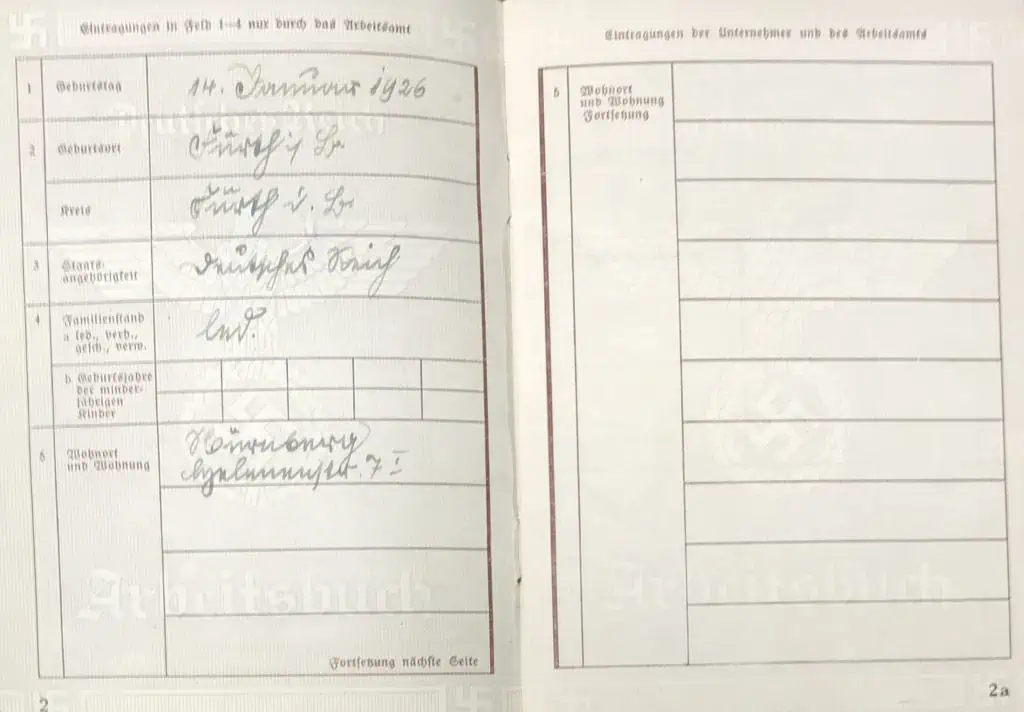 Eintragungen in Feld 1–4 nur durch das Arbeitsamt
1 Geburtstag 14. Januar 1926
2 Geburtsort Fürth i/ B.
Kreis Fürth i. B.
3 Staats-
angehörigkeit Deutsches Reich
4 Familienstand
a led., verh.,
gesch., verw. led.
b Geburtsjahre
der minder-
jährigen
Kinder
5 Wohnort
und Wohnung Nürnberg
Helenenstr. 7 I
Deutsches Reich
Arbeitsbuch
Fortsetzung nächste Seite
2
Eintragungen der Unternehmer und des Arbeitsamts
5 Wohnort
und Wohnung
Fortsetzung
Arbeitsbuch
2a